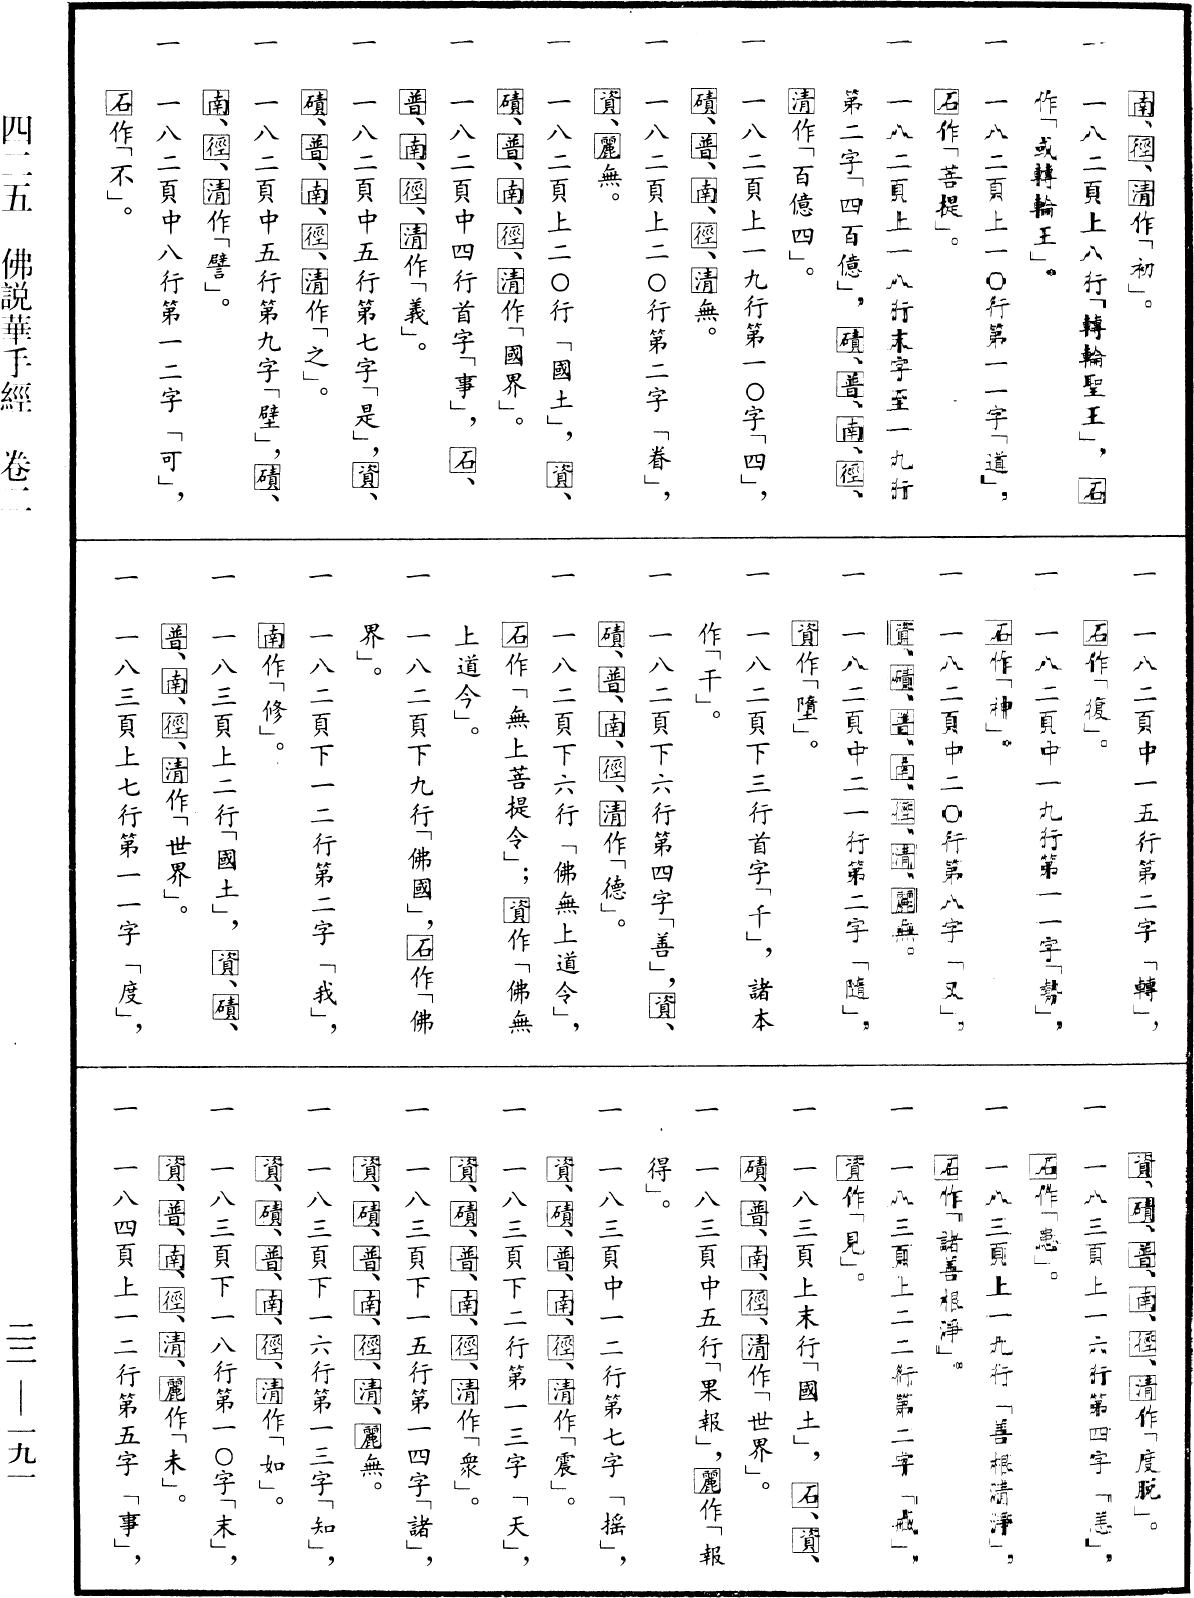 南、徑、清作「初」。
一 一八二頁上八行「轉輪聖王」，石
作「或轉輪王」。
一 一八二頁上一〇行第一一字「道」，
石作「菩提」。
一 一八二頁上一八行末字至一九行
第二字「四百億」，磧、普、南、徑、
清作「百億四」。
一 一八二頁上一九行第一〇字「四」，
磧、普、南、徑、清無。
一 一八二頁上二〇行第二字「眷」，
資、麗無。
一 一八二頁上二〇行「國土」，資、
磧、普、南、徑、清作「國界」。
一 一八二頁中四行首字「事」，石、
普、南、徑、清作「義」。
一 一八二頁中五行第七字「是」，資、
磧、普、南、徑、清作「之」。
一 一八二頁中五行第九字「壁」，磧、
南、徑、清作「譬」。
一 一八二頁中八行第一二字「可」，
石作「不」。
一 一八二頁中一五行第二字「轉」，
石作「復」。
一 一八二頁中一九行第一一字「勢」，
石作「神」。
一 一八二頁中二〇行第八字「又」，
資、磧、普、南、徑、清、麗無。
一 一八二頁中二一行第二字「隨」，
資作「墮」。
一 一八二頁下三行首字「千」，諸本
作「干」。
一 一八二頁下六行第四字「善」，資、
磧、普、南、徑、清作「德」。
一 一八二頁下六行「佛無上道令」，
石作「無上菩提令」；資作「佛無
上道今」。
一 一八二頁下九行「佛國」，石作「佛
界」。
一 一八二頁下一二行第二字「我」，
南作「修」。
一 一八三頁上二行「國土」，資、磧、
普、南、徑、清作「世界」。
一 一八三頁上七行第一一字「度」，
資、磧、普、南、徑、清作「度脫」。
一 一八三頁上一六行第四字「恙」，
石作「患」。
一 一八三頁上一九行「善根清淨」，
石作「諸善根淨」。
一 一八三頁上二二行第二字「戒」，
資作「見」。
一 一八三頁上末行「國土」，石、資、
磧、普、南、徑、清作「世界」。
一 一八三頁中五行「果報」，麗作「報
得」。
一 一八三頁中一二行第七字「摇」，
資、磧、普、南、徑、清作「震」。
一 一八三頁下二行第一三字「天」，
資、磧、普、南、徑、清作「衆」。
一 一八三頁下一五行第一四字「諸」，
資、磧、普、南、徑、清、麗無。
一 一八三頁下一六行第一三字「知」，
資、磧、普、南、徑、清作「如」。
一 一八三頁下一八行第一〇字「末」，
資、普、南、徑、清、麗作「未」。
一 一八四頁上一二行第五字「事」，
四二五 佛説華手經 卷二
二二—一九一